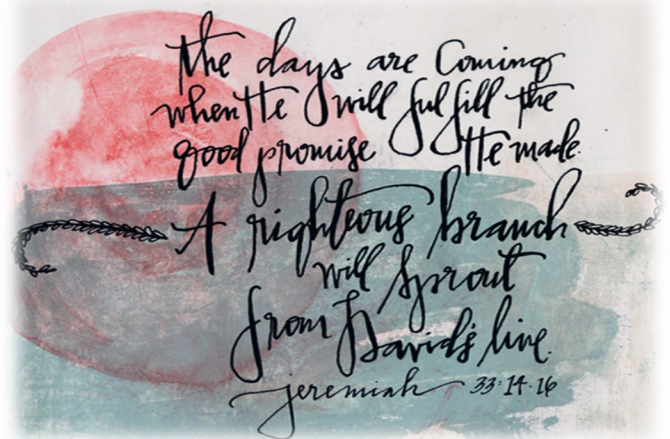 the days are Coming
when He will fulfill the
good promise He made.
A righteous branch
will sprout
from David's line.
jeremiah 33:14-16